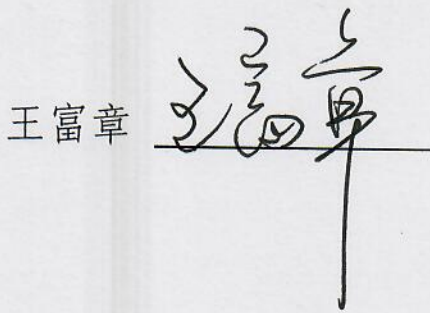 王富章 王富章